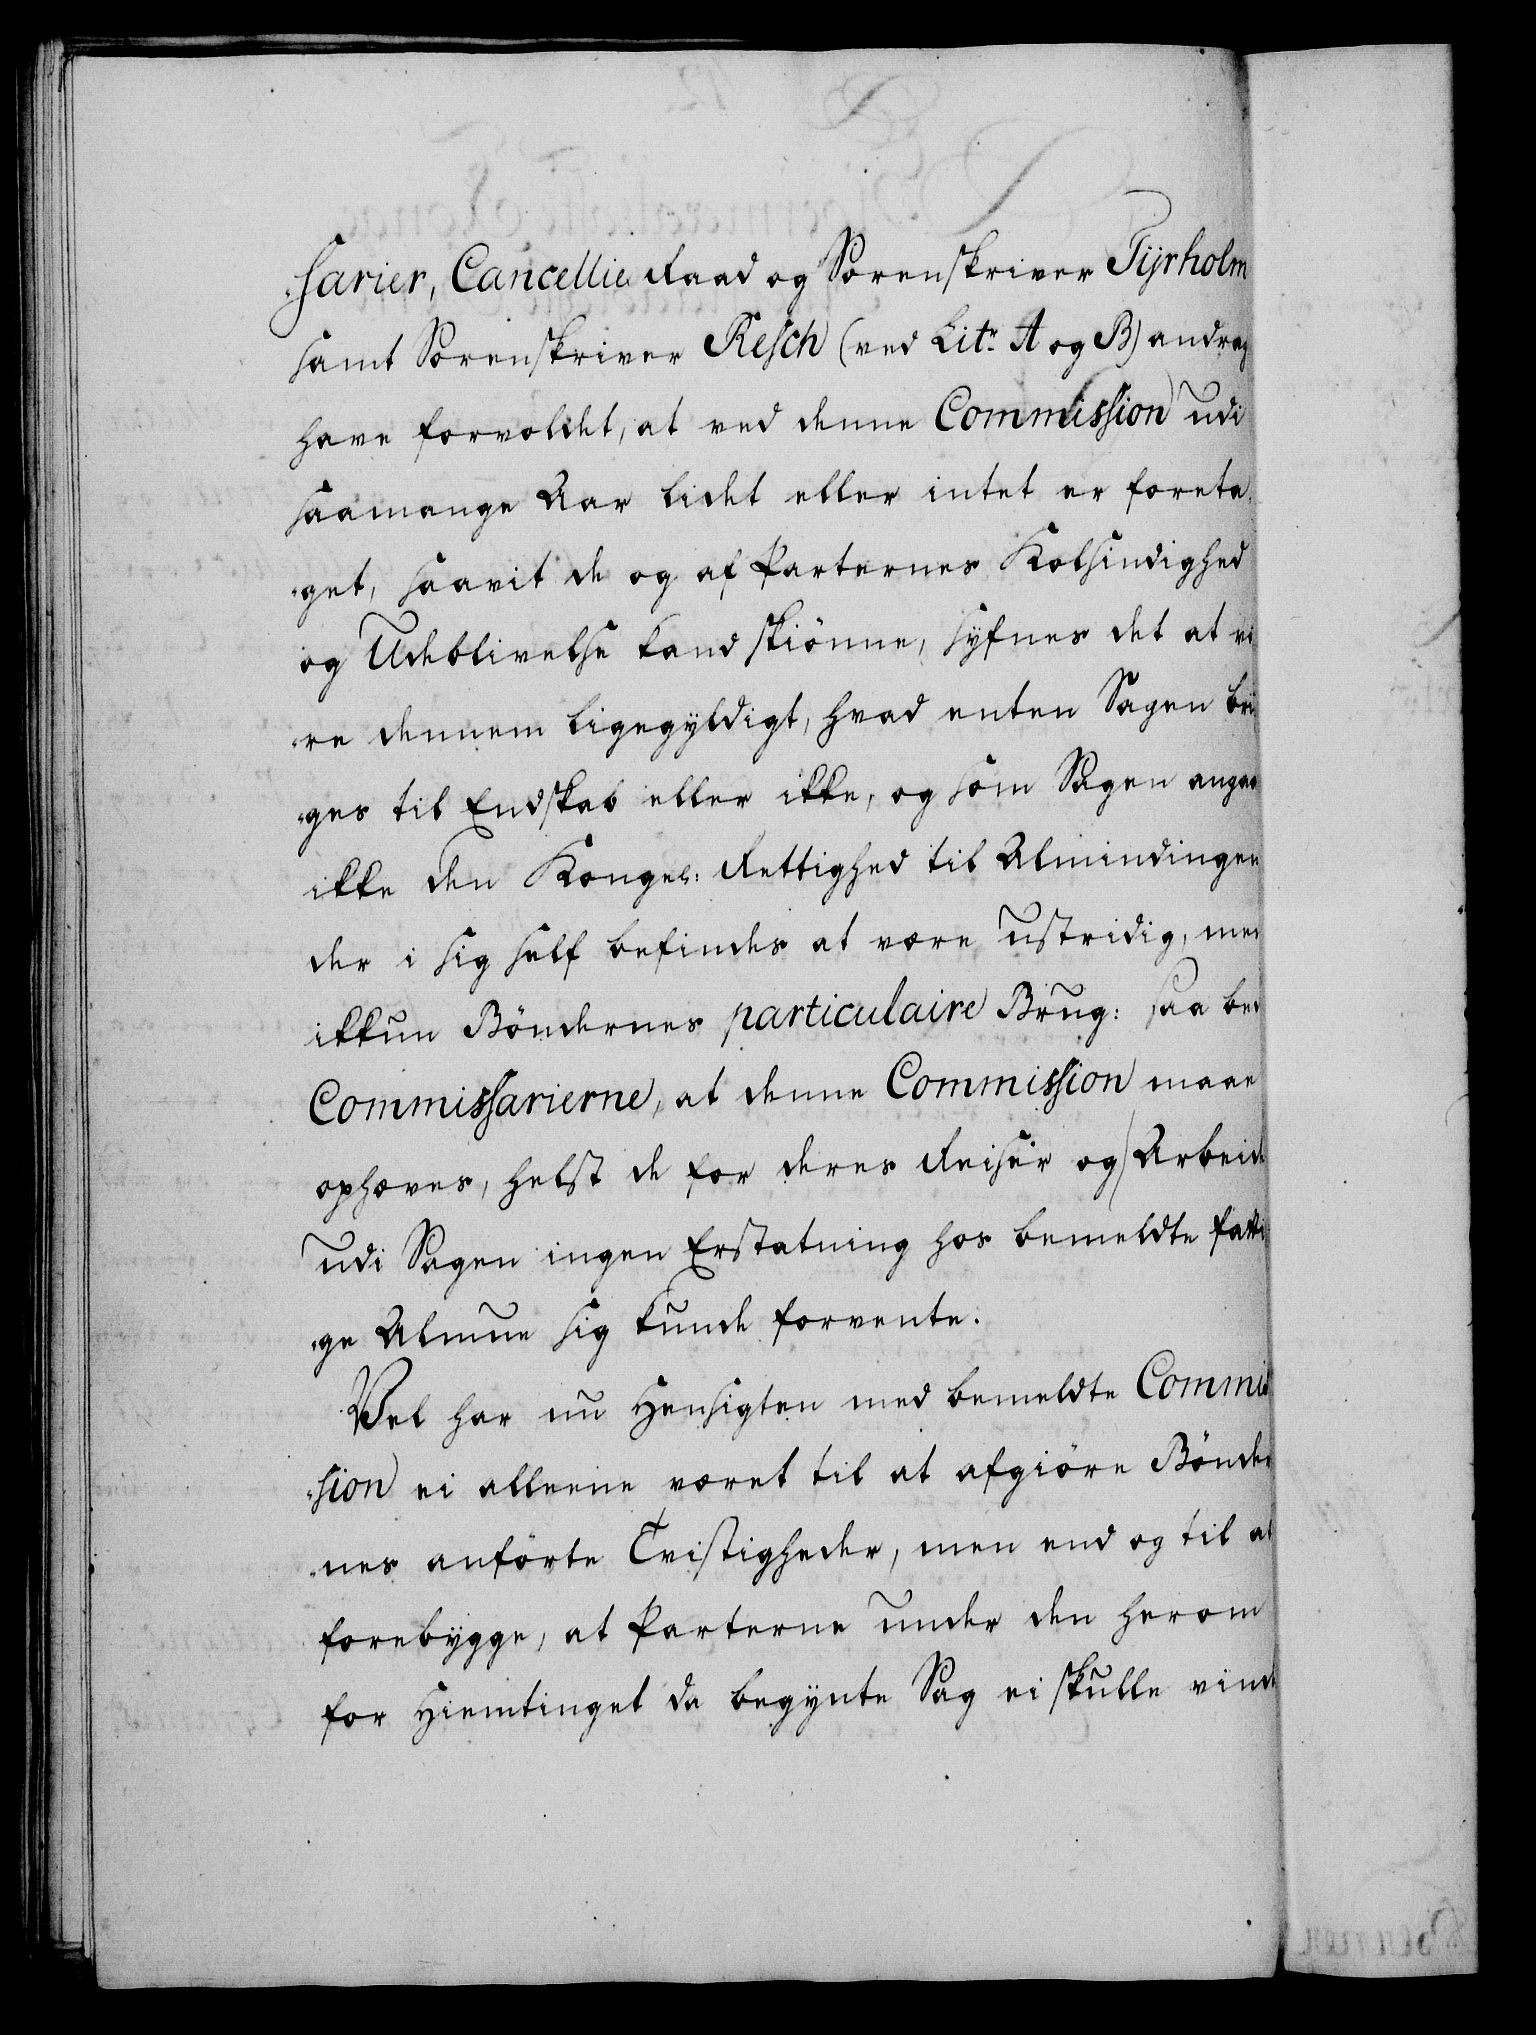 sarier, Cancellie Raad og Sorenskriver Tyrholm
samt Sorenskriver Resch (ved Litr A og B) andrag
have forvoldet, at ved denne Commission udi
saamange Aar lidet eller intet er foreta,
"get, saavit de og af Parternes Kolsindighed
og Udeblivelse kand skiönne, syfnes det at væ
"re dennem ligegyldigt, hvad enten Sagen brin
"ges til Endskab eller ikke, og som Sagen angaar
ikke den Kongel: Rettighed til Almindingen
der i sig self befindes at være ustridig, men
ikkun Böndernes particulaire Brug: saa bed
Commissarierne, at denne Commission maae
ophæves, helst de for deres Reiser og Arbeide
udi Sagen ingen Erstatning hos bemeldte fatti
"ge Almue sig kunde forvente.
Vel har nu Hensigten med bemeldte Commis
"sion ei alleene været til at afgiöre Bönder
"nes anförte Tvistigheder, men end og til at
forebygge, at Parterne under den herom
for Hiemtinget da begynte Sag ei skulle vinde